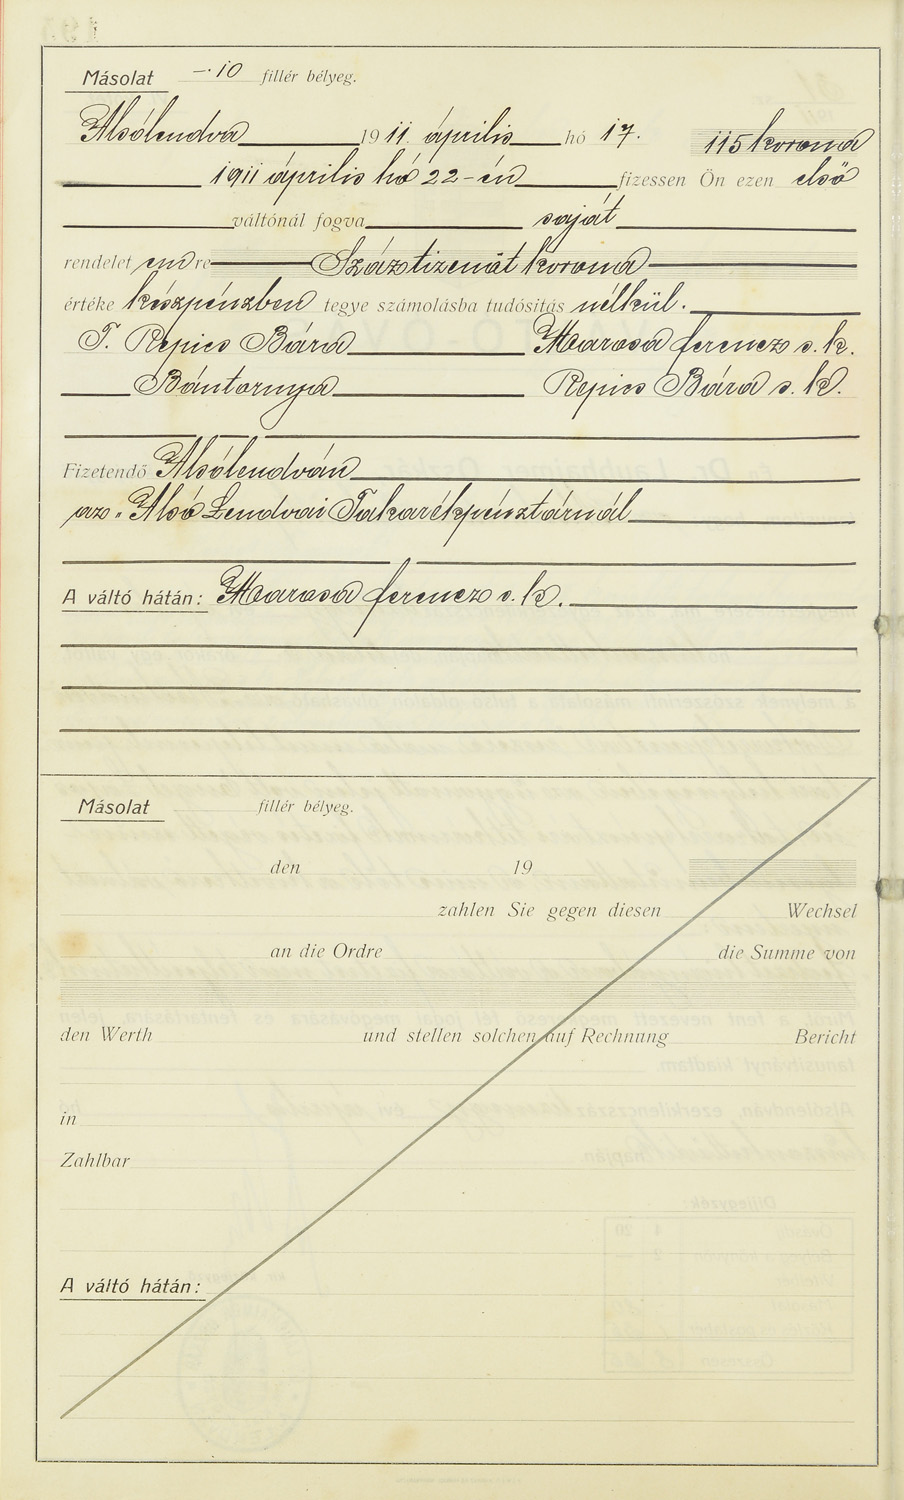 Másolat —·10 fillér bélyeg.
Alsólendva 1911. április hó 17. 115 korona
1911 április hó 22-én fizessen Ön ezen első
váltónál fogva saját
rendelet emre Száztizenöt korona
értéke készpénzben tegye számolásba tudósitás nélkül.
T. Repics Bára Marosa ferencz s. k.
Bántornya Repics Bára s. k.
Fizetendő Alsólendván
az „Alsó Lendvai Takarékpénztárnál
A váltó hátán: Marosa ferencz s. k.
Másolat fillér bélyeg.
den 19
zahlen Sie gegen diesen Wechsel
an die Ordre die Summe von
den Werth und stellen solchen auf Rechnung Bericht
in
Zahlbar
A váltó hátán: